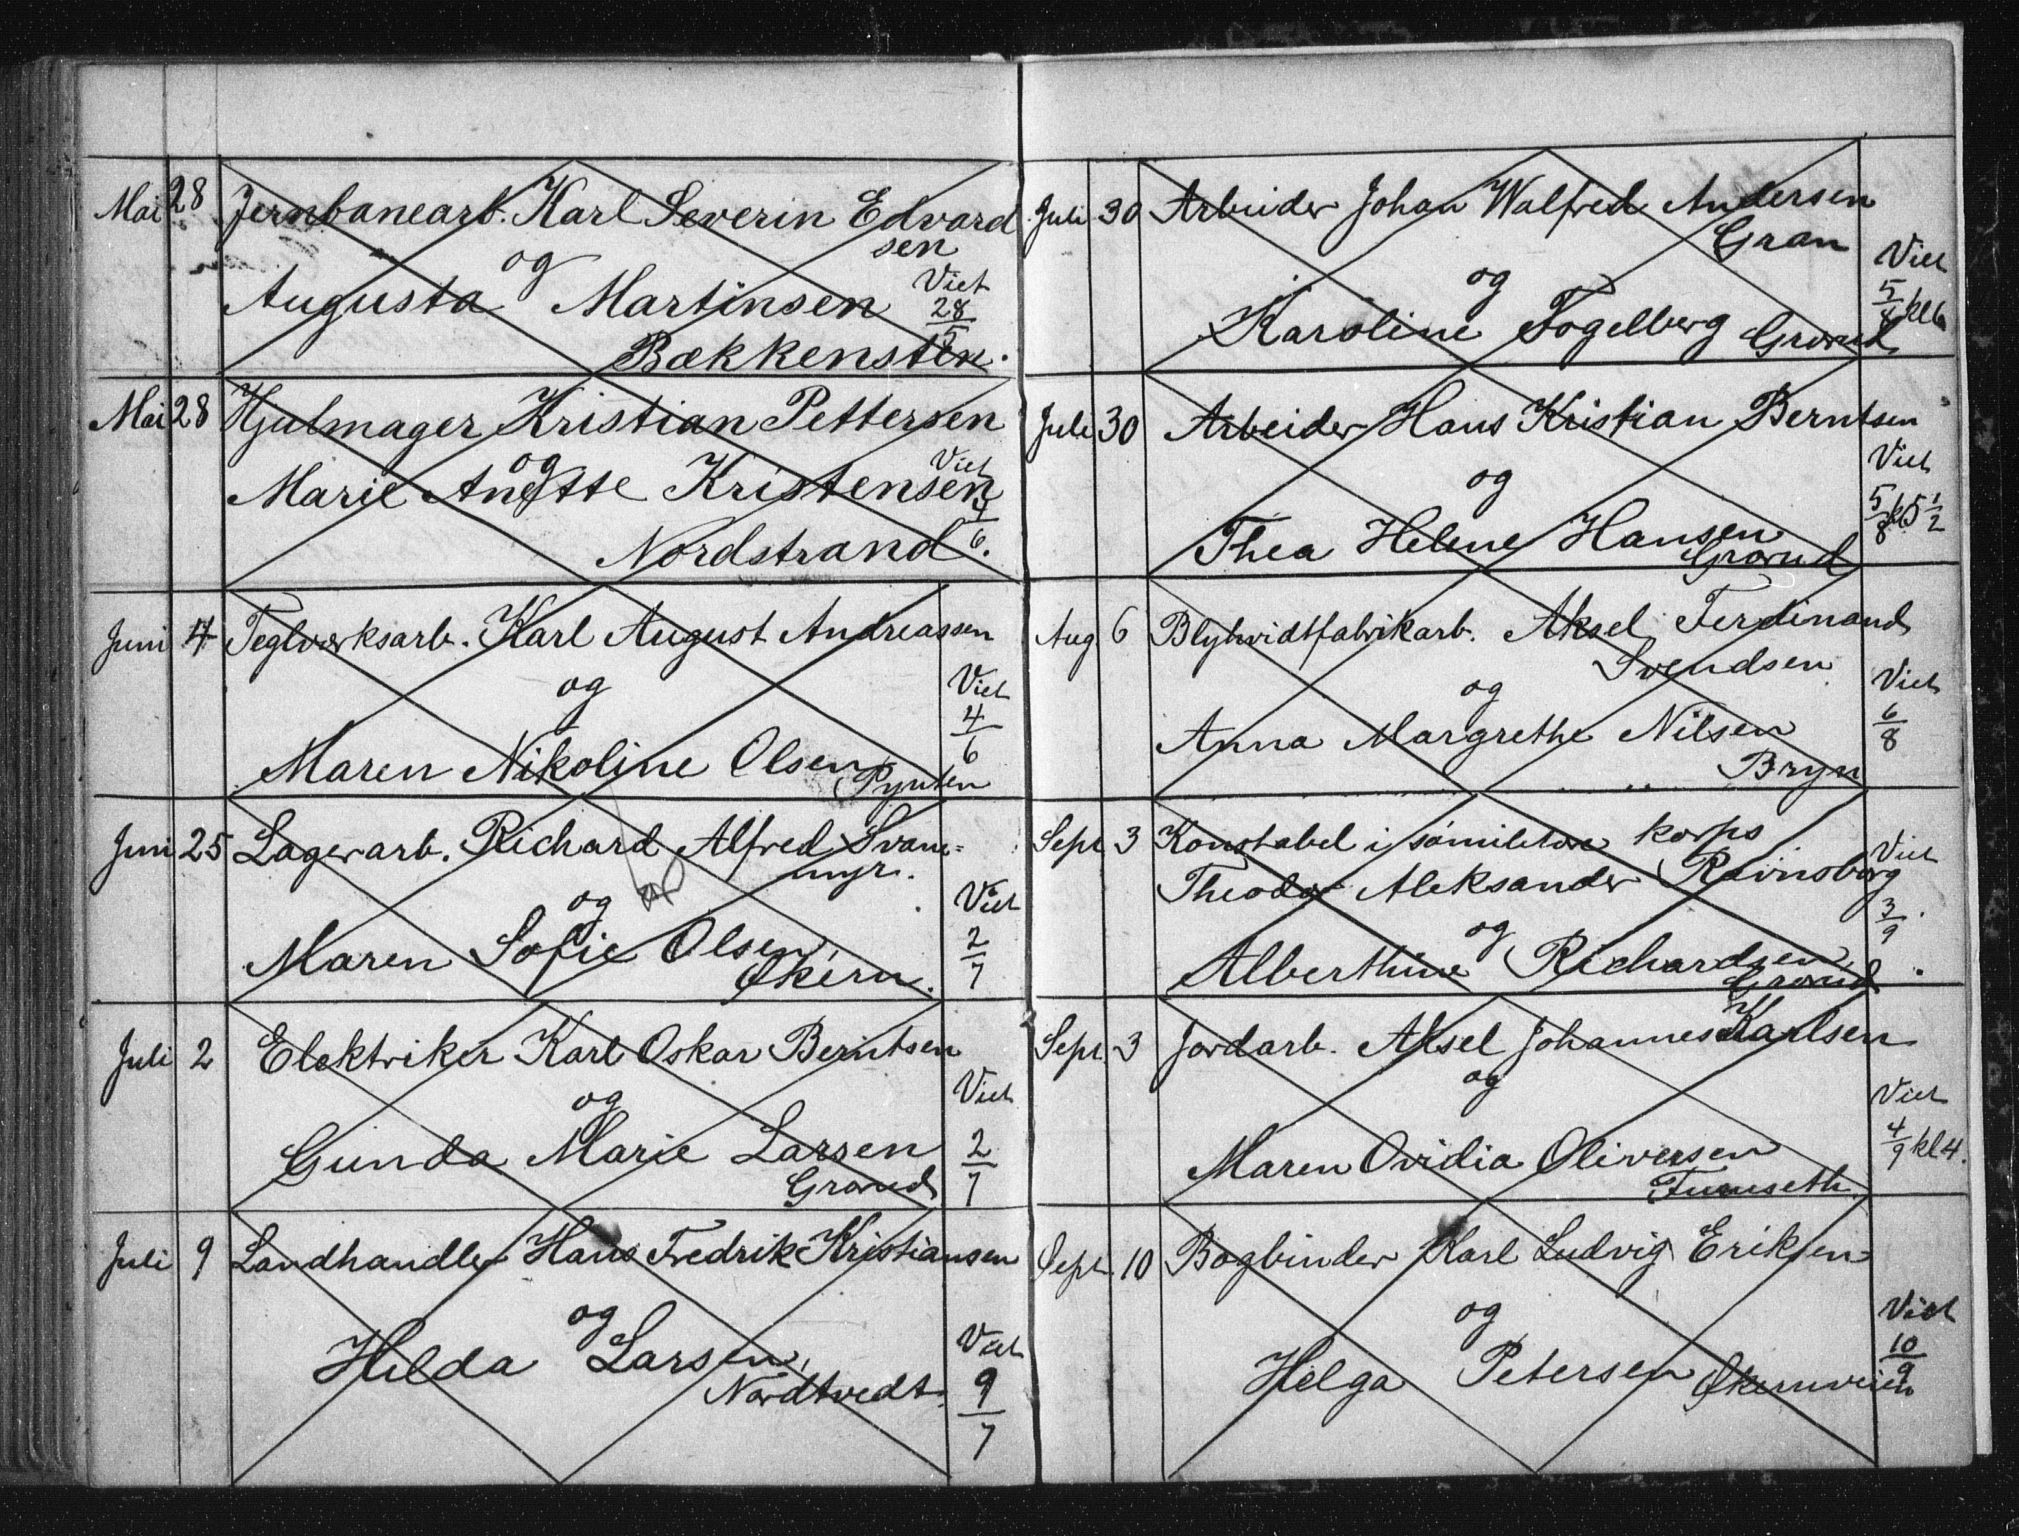 Mai 28 Jernbanearb. Karl Severin Edvard
sen
og
Augusta Martinsen Viet 28/5
Bækkensten.
Mai 28 Hjulmager Kristian Pettersen
og
Marie Anette Kristensen Viet 4/6.
Nordstrand
Juni 4 Teglverksarb. Karl August Andreassen
og
Viet 4/6
Maren Nikoline Olsen
Pynten
Juni 25 Lagerarb. Richard Alfred Svane=
myr.
og
Viet 2/7
Maren Sofie Olsen
Økern.
Juli 2 Elektriker Karl Oskar Berntsen
og
Viet 2/7
Gunda Marie Larsen
Grorud
Juli 9 Landhandler Hans Fredrik Kristiansen
og
Hilda Larsen Viet 9/7
Nordtvedt.
Juli 30 Arbeider Johan Walfred Andersen
Gran
og
Viet 5/8 kl 6
Karoline Fogelberg Grorud
Juli 30 Arbeider Hans Kristian Berntsen
og
Viet 5/8 kl 5 1/2
Thea Helene Hansen
Grorud
Aug. 6 Blyhvidtfabrikarb. Aksel Ferdinand
Svendsen
og
Viet 6/8
Anna Margrethe Nilsen
Bryn
Sept 3 Konstabel i sømilitære korps
Theodor Aleksander Ravnsborg
og
Viet 3/9.
Alberthine Richardsen
Grorud
Sept. 3 Jordarb. Aksel Johannes Karlsen
og
Viet 4/9 kl 4.
Maren Ovidia Oliversen
Furuseth.
Sept. 10 Bogbinder Karl Ludvig Eriksen
og
Viet 10/9
Helga Petersen Økernveien